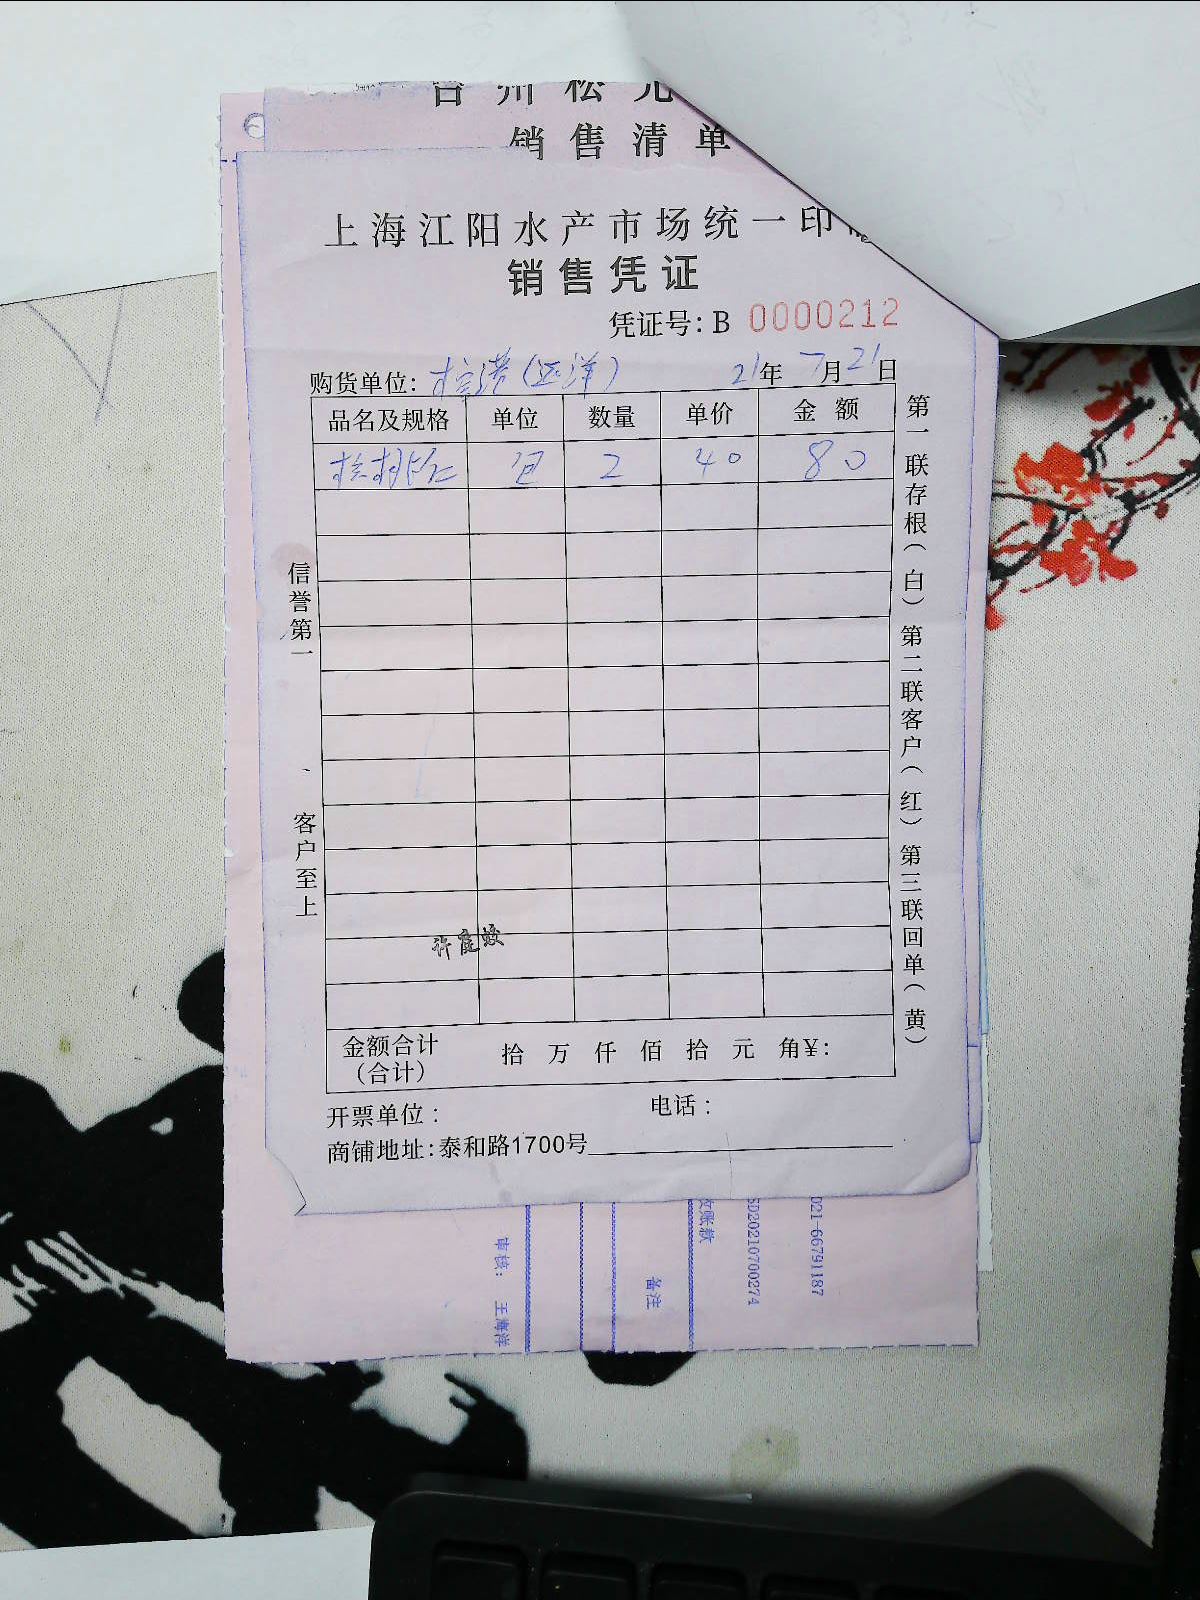 台州松元
销售清单
上海江阳水产市场统一印
销售凭证
凭证号: B 0000212
购货单位: (远洋) 21年7月21日
品名及规格 单位 数量 单价 金额
核桃仁 包 2 40 80
信誉第一、客户至上
第一联存根(白)第二联客户(红)第三联回单(黄)
许庭蛟
金额合计 拾 万 仟 佰 拾 元 角¥:
(合计)
开票单位: 电话:
商铺地址:泰和路1700号
审核: 王海洋
备注
收账款
SD20210700274
021-66791187